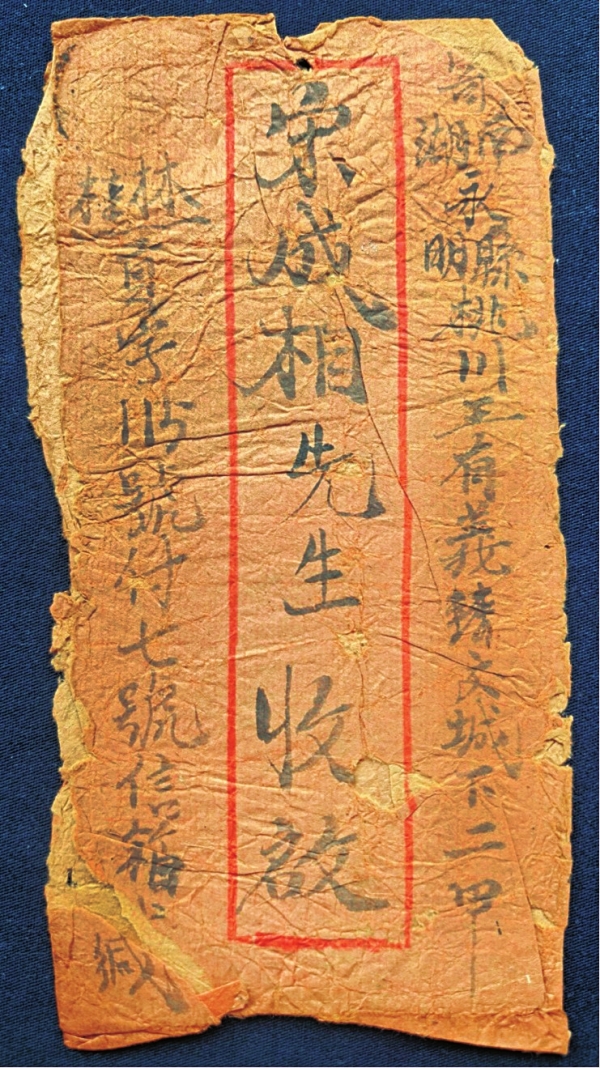 寄湖南永明縣桃川王有義交城下二甲
宋成相先生收啟
桂林直字115號付七號信箱緘